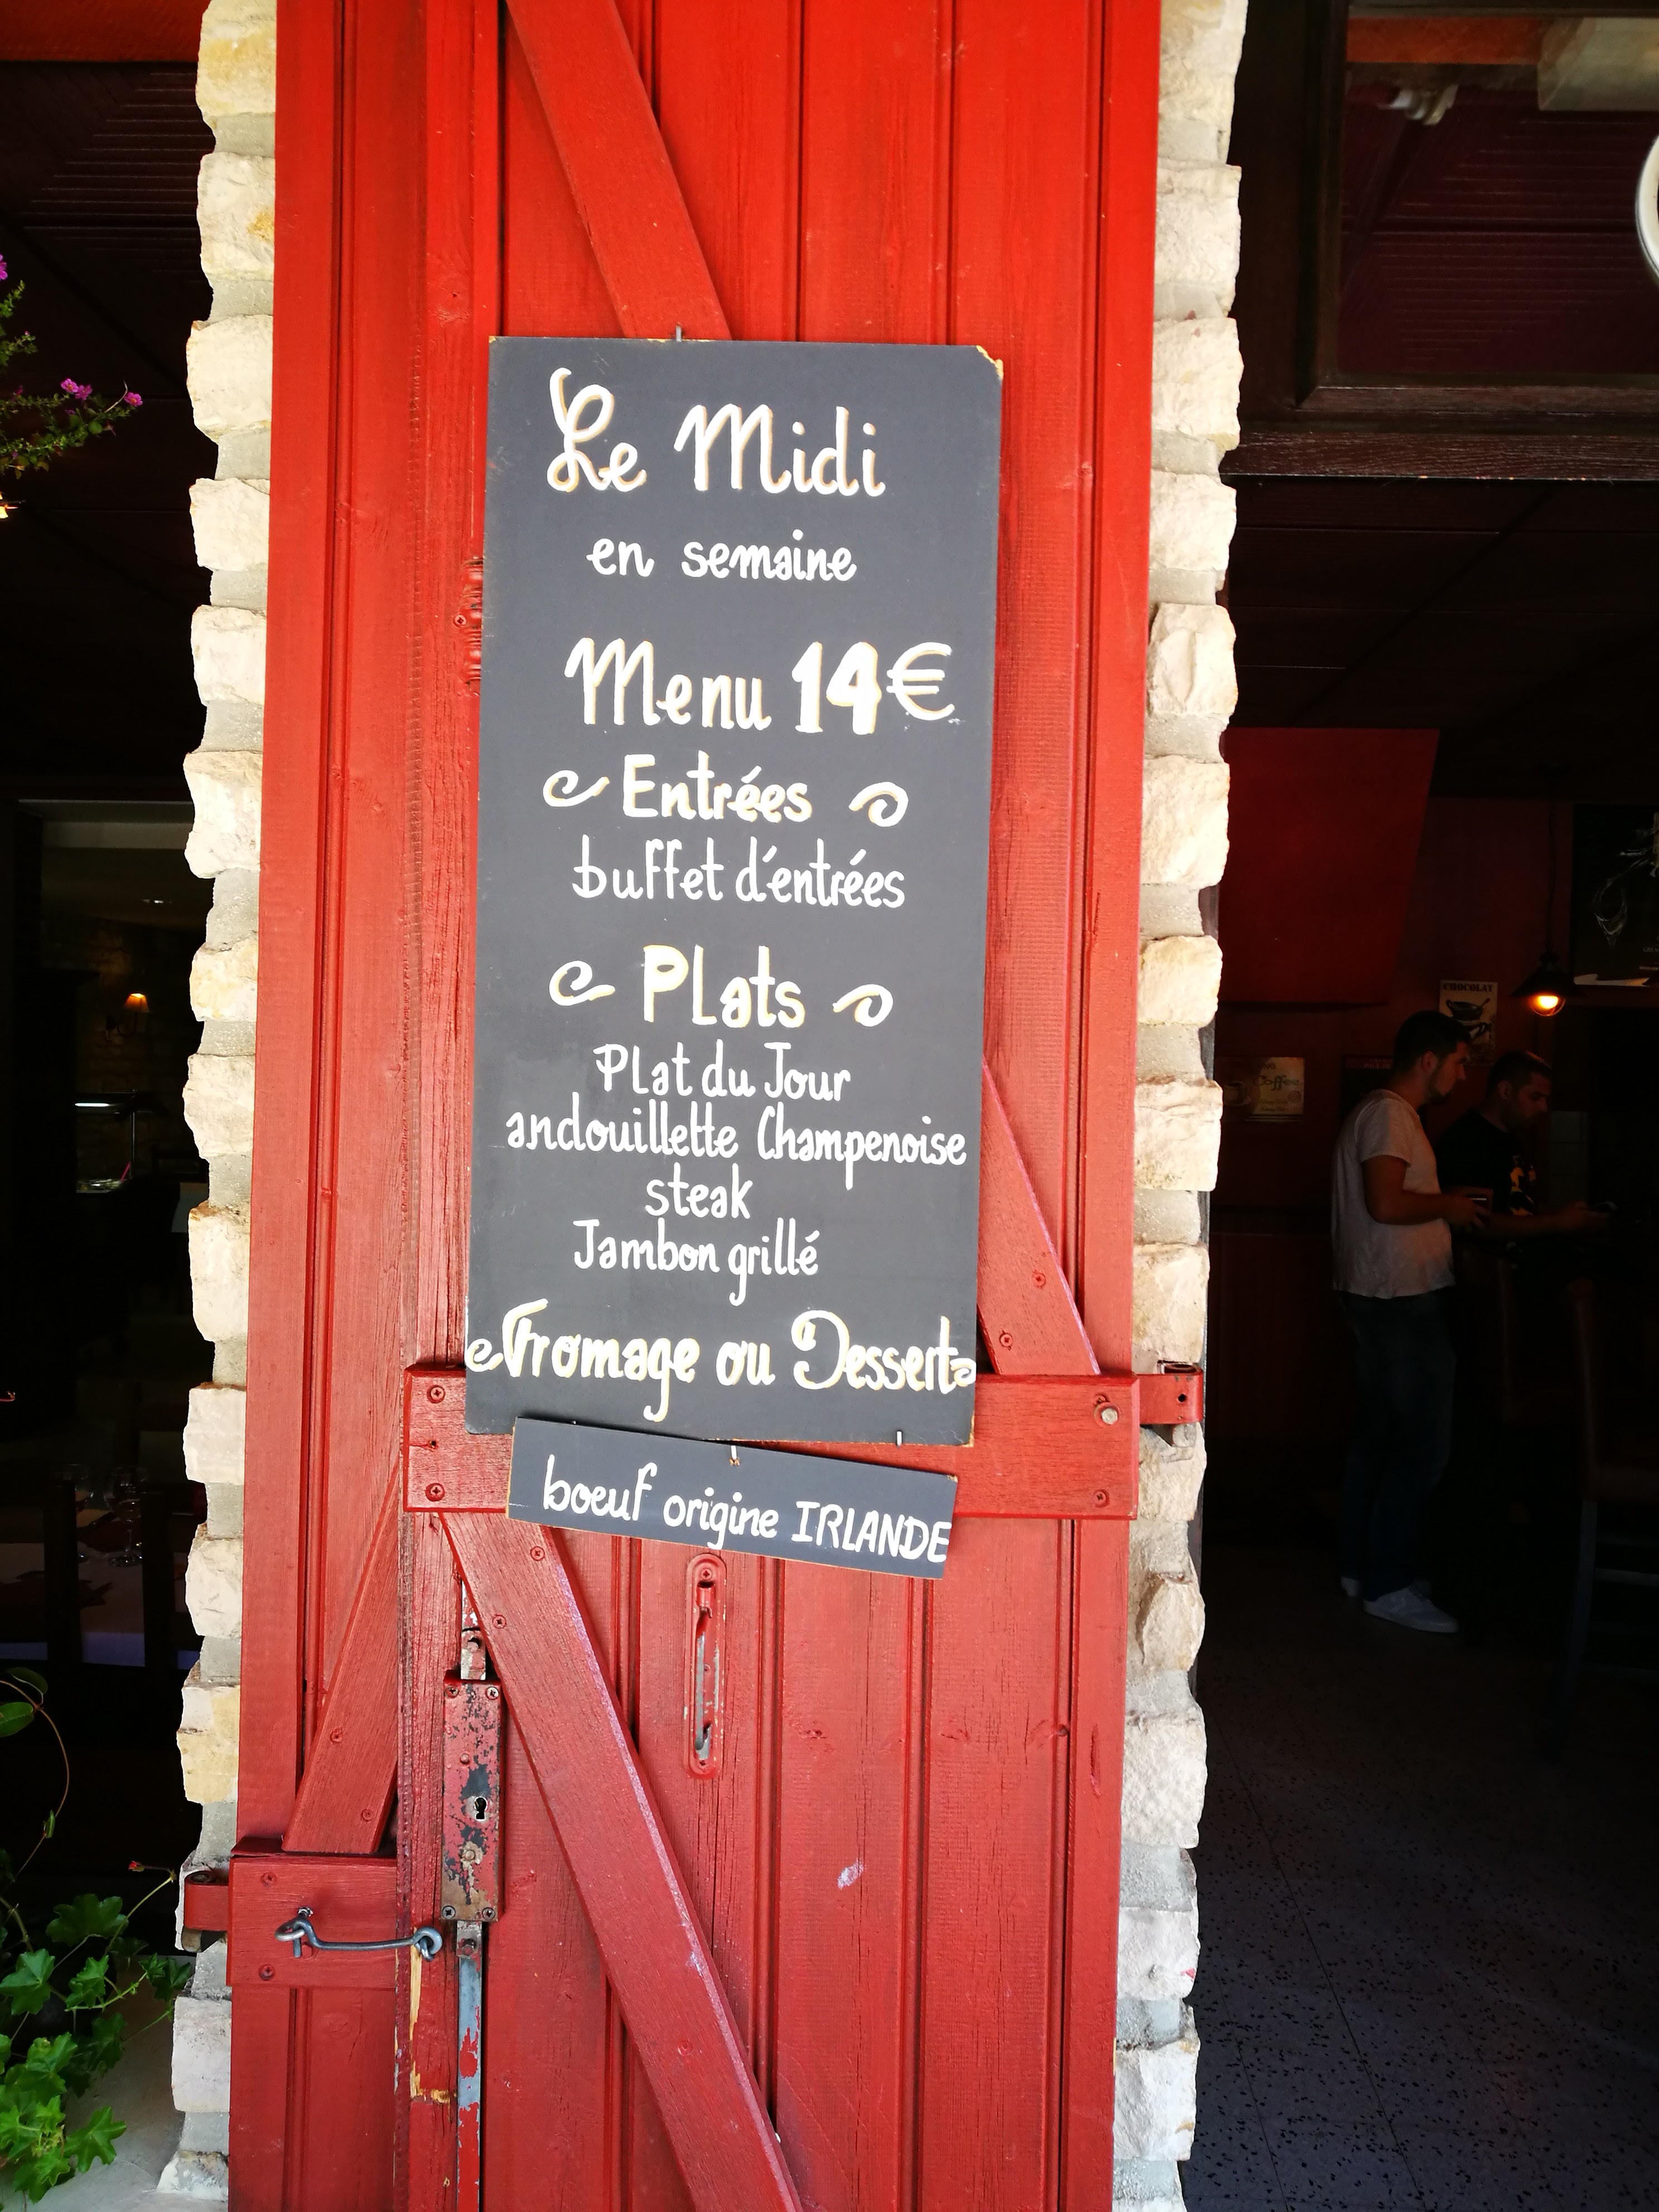 Le Midi
en semaine
Menu 14€
Entrées
buffet d'entrées
Plats
Plat du Jour
andouillette Champenoise
steak
Jambon grillé
Fromage ou Dessert
boeuf origine IRLANDE
CHOCOLAT
Coffee